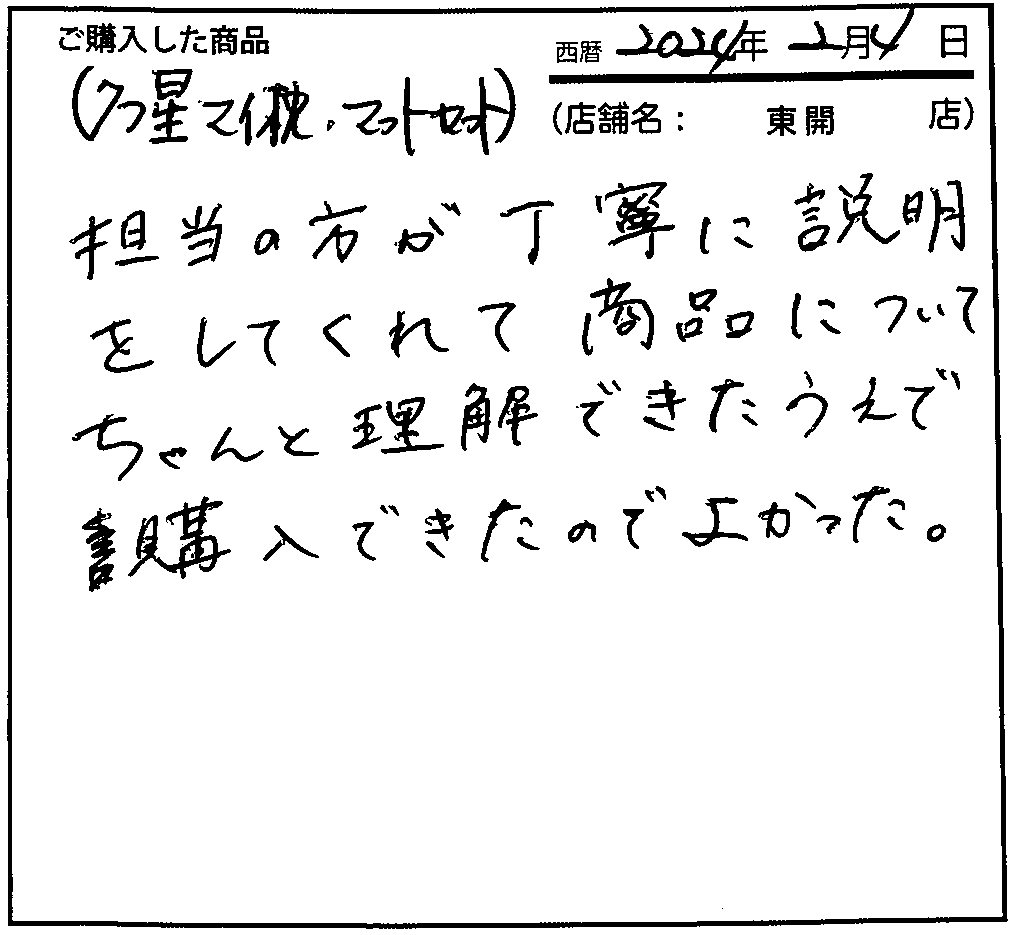 ご購入した商品
西暦 2024年 2月4日
(7つ星マイ枕.マットセット)
(店舗名: 東開 店)
担当の方が丁寧に説明
をしてくれて商品について
ちゃんと理解できたうえで
購入できたのでよかった。